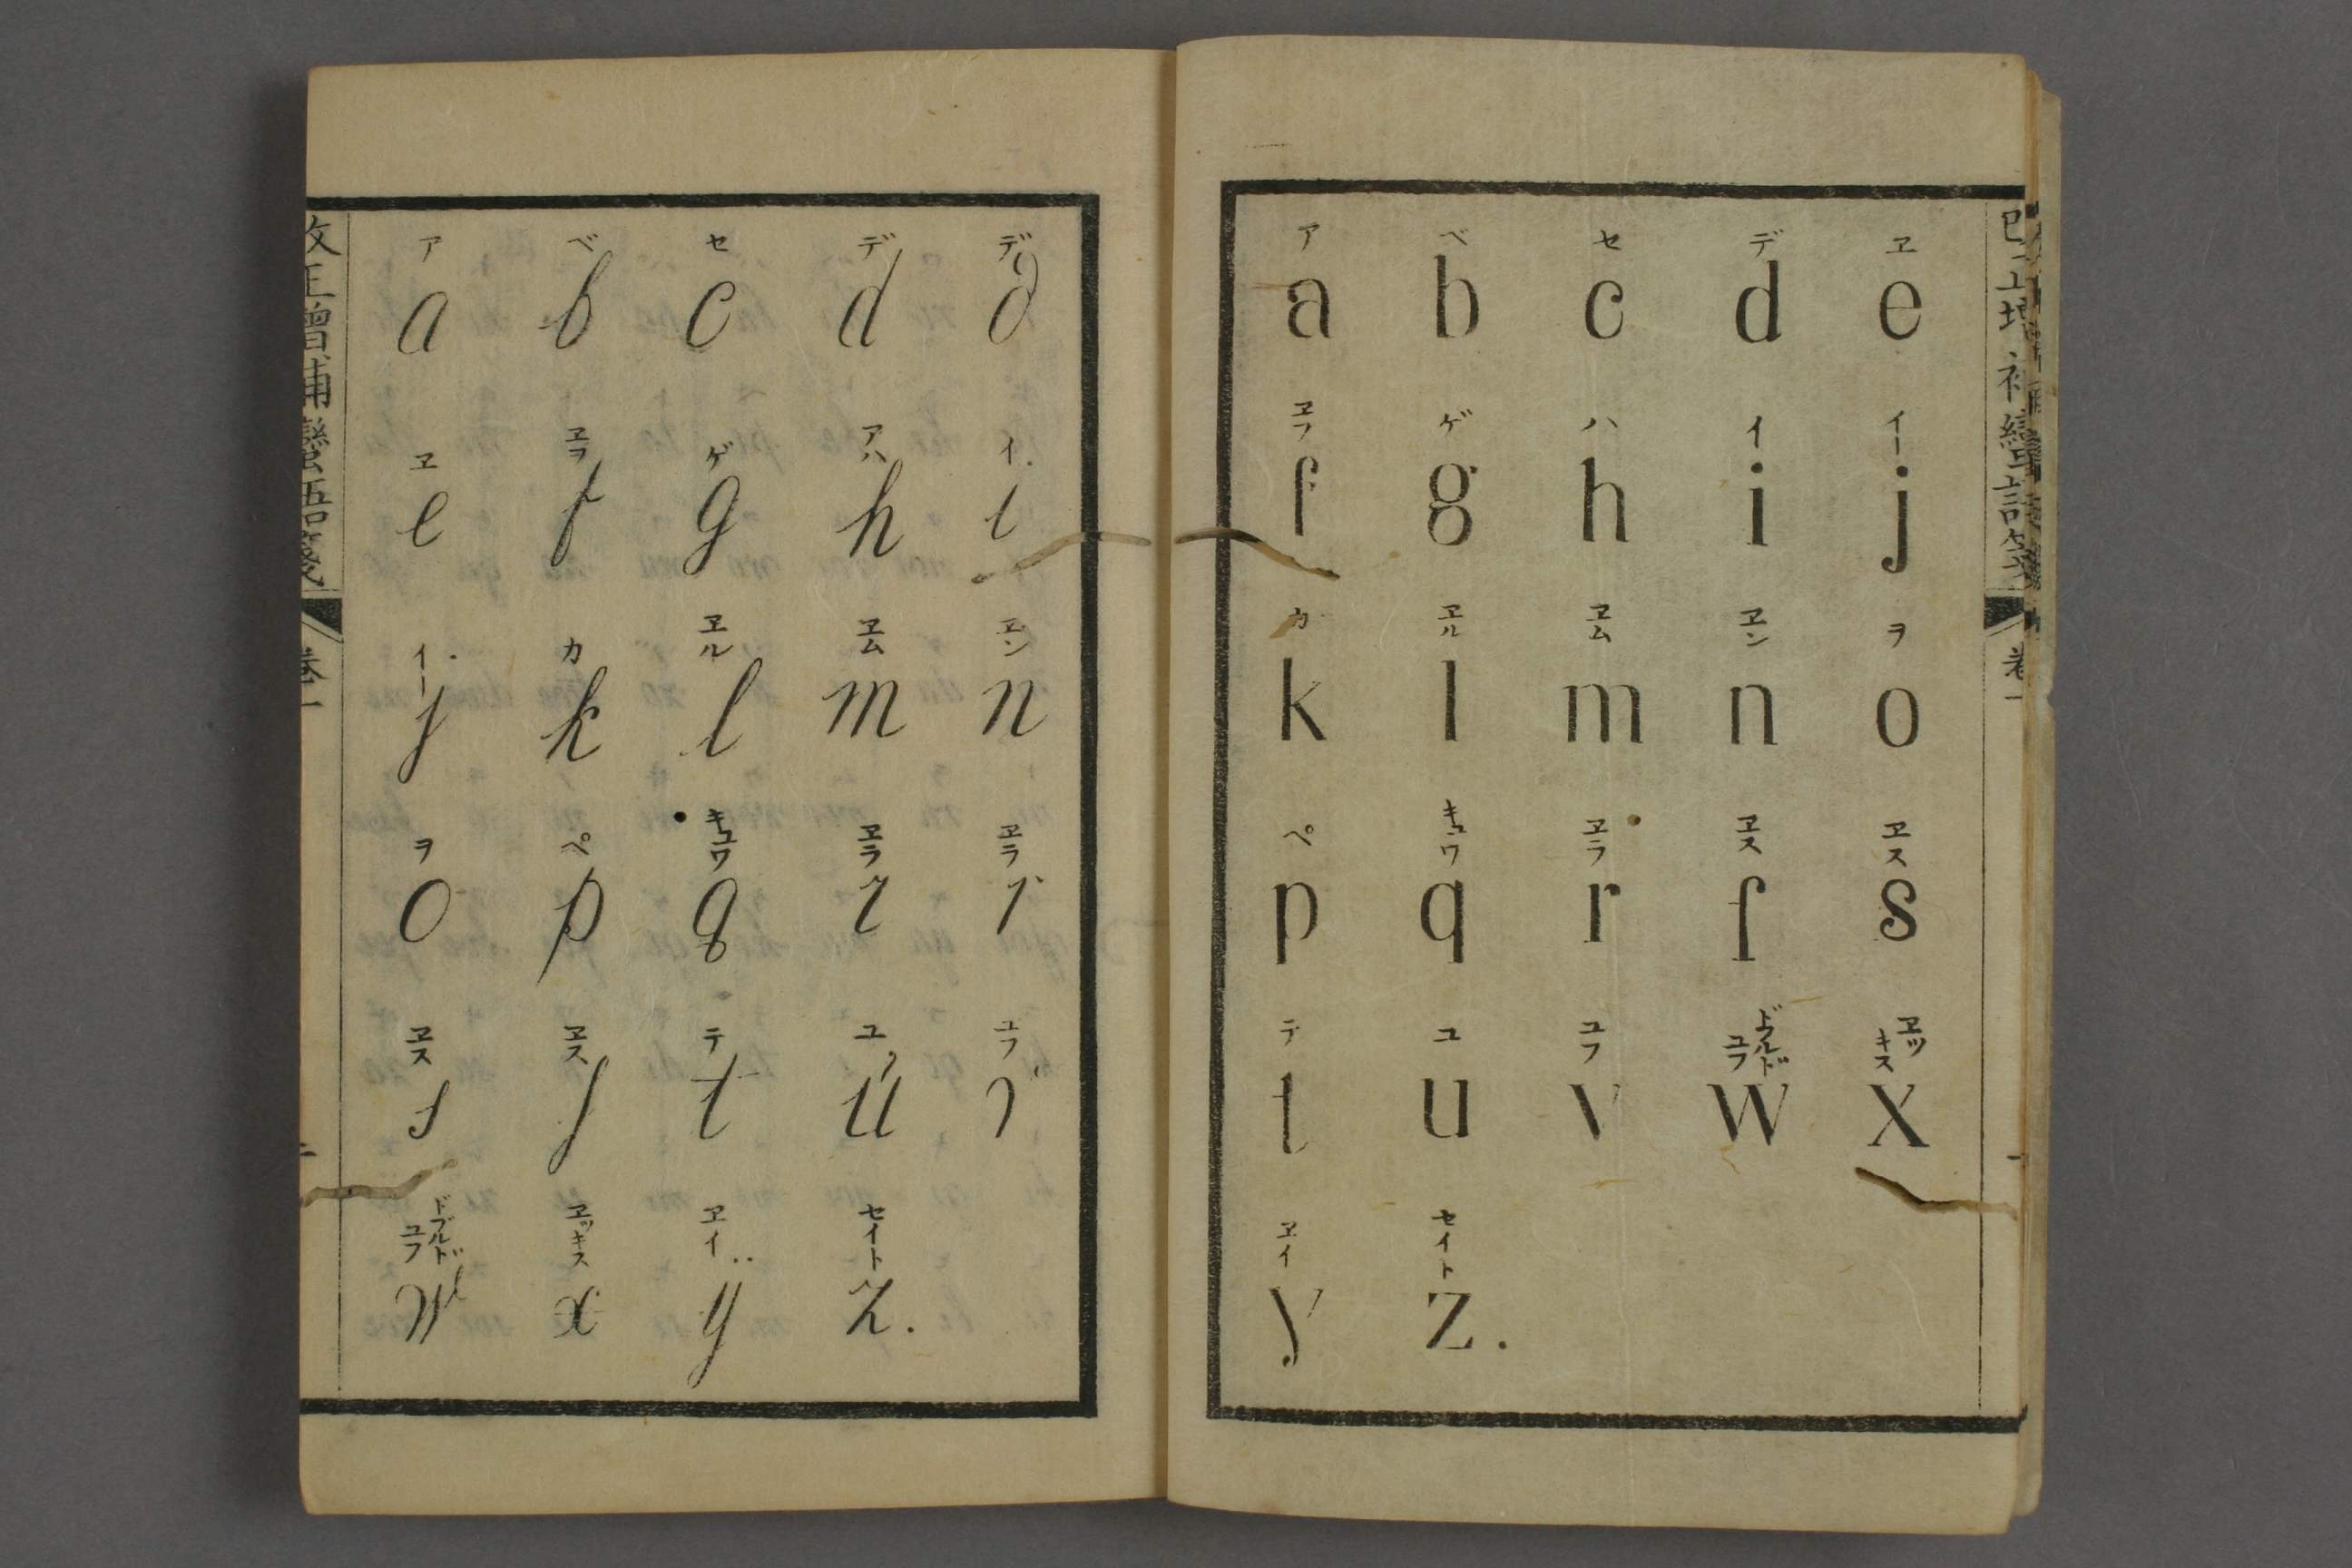 ア ベ セ デ ヱ
a b c d e
ヱフ ゲ ハ イ イー
f g h i j
カ ヱル ヱム ヱン ヲ
k l m n o
ペ キュウ ヱラ ヱス ヱス
p q r ſ s
テ ユ ユフ ドブルドユフ ヱッキス
t u v w x
ヱイ セイト
y z.
卷一
改正増補蠻語箋
卷一
ア ベ セ デ デ
a b c d ∂
ヱ ヱフ ゲ アハ イ
e f g h i
イー カ ヱル ヱム ヱン
j k l m n
ヲ ペ キュウ ヱラ ヱラ
o p q r r
ヱス ヱス テ ユ ユフ
s ſ t u v
ドブルドユフ ヱッキス ヱイ セイト
w x ÿ z.